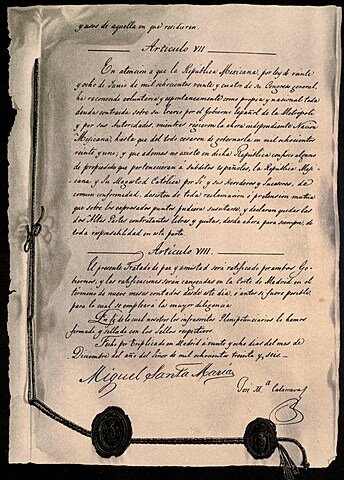 y usos de aquella en que residieren.
Artículo VII
En atencion á que la República Mexicana, por ley de veinte
y ocho de Junio de mil ochocientos veinte y cuatro de su Congreso general,
ha reconocido voluntaria y espontaneamente como propia y nacional toda
deuda contraida sobre su Erario por el Gobierno Español de la Metropoli
y por sus Autoridades, mientras rigieron la ahora independiente Nacion
Mexicana, hasta que del todo cesaron de gobernarla en mil ochocientos
veinte y uno; y que ademas no existe en dicha República confisco alguno
de propiedades que pertenecieran á Subditos españoles, la República Meji-
cana, y Su Magestad Católica por sí y sus herederos y Sucesores, de
comun conformidad, desisten de toda reclamacion ó pretension mutua
que sobre los espresados puntos pudiera suscitarse, y declaran quedar las
dos Altas Partes contratantes libres y quitas, desde ahora para siempre, de
toda responsabilidad en esta parte.
Artículo VIII
El presente Tratado de paz y amistad será ratificado por ambos Go-
biernos, y las ratificaciones serán cangeadas en la Corte de Madrid en el
término de nueve meses contados desde este dia, ó antes si fuere posible,
para lo cual se empleará la mayor diligencia.
En fé de lo cual nosotros los infrascritos Plenipotenciarios lo hemos
firmado y sellado con los Sellos respectivos.
Fecho por triplicado en Madrid á veinte y ocho dias del mes de
Diciembre del año del Señor de mil ochocientos treinta y seis.
Miguel Santa María
José M.ª Calatrava